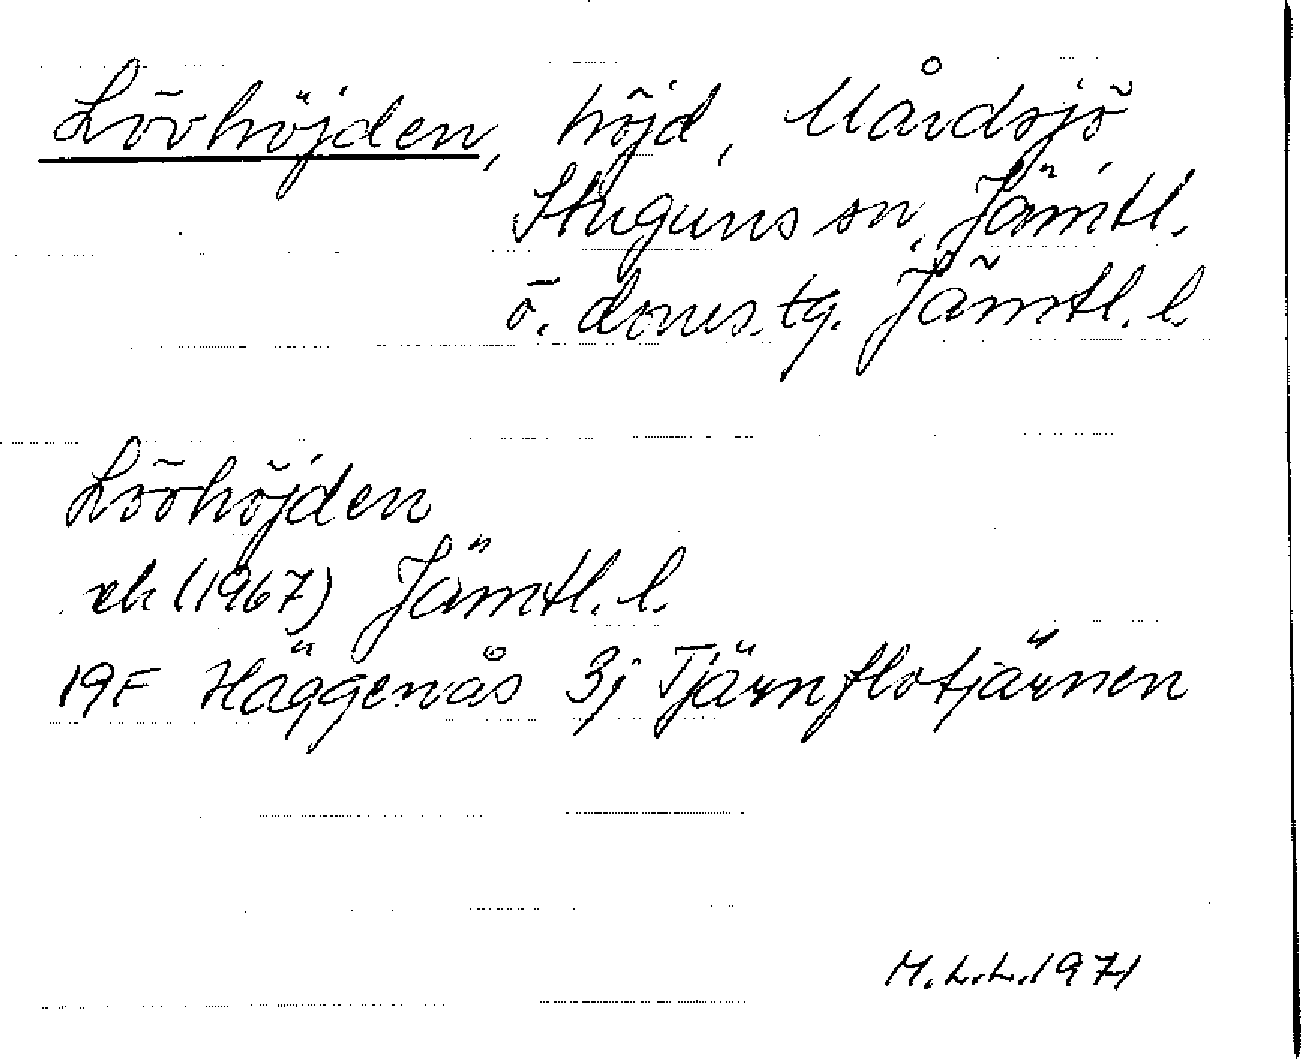 Lövhöjden, höjd, Mårdsjö
Stuguns sn, Jämtl.
ö. doms. tg. Jämtl. l.
Lövhöjden
ek (1967) Jämtl. l.
19F Häggenås 3j Tjärnflotjärnen
M.L.L. 1971